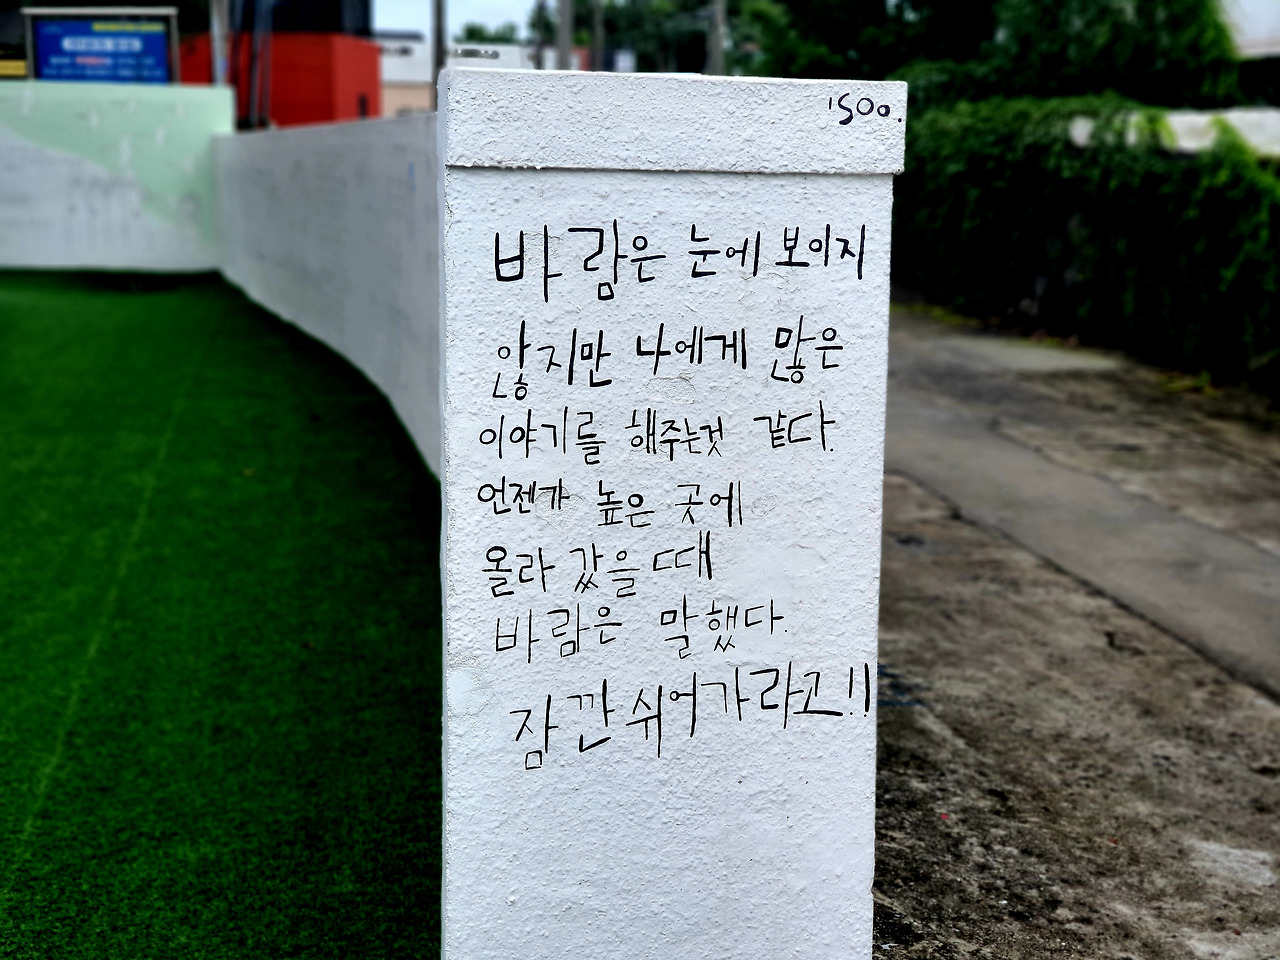 'soo.
바람은 눈에 보이지
않지만 나에게 많은
이야기를 해주는것 같다.
언젠가 높은 곳에
올라 갔을 때
바람은 말했다.
잠깐 쉬어가라고!!